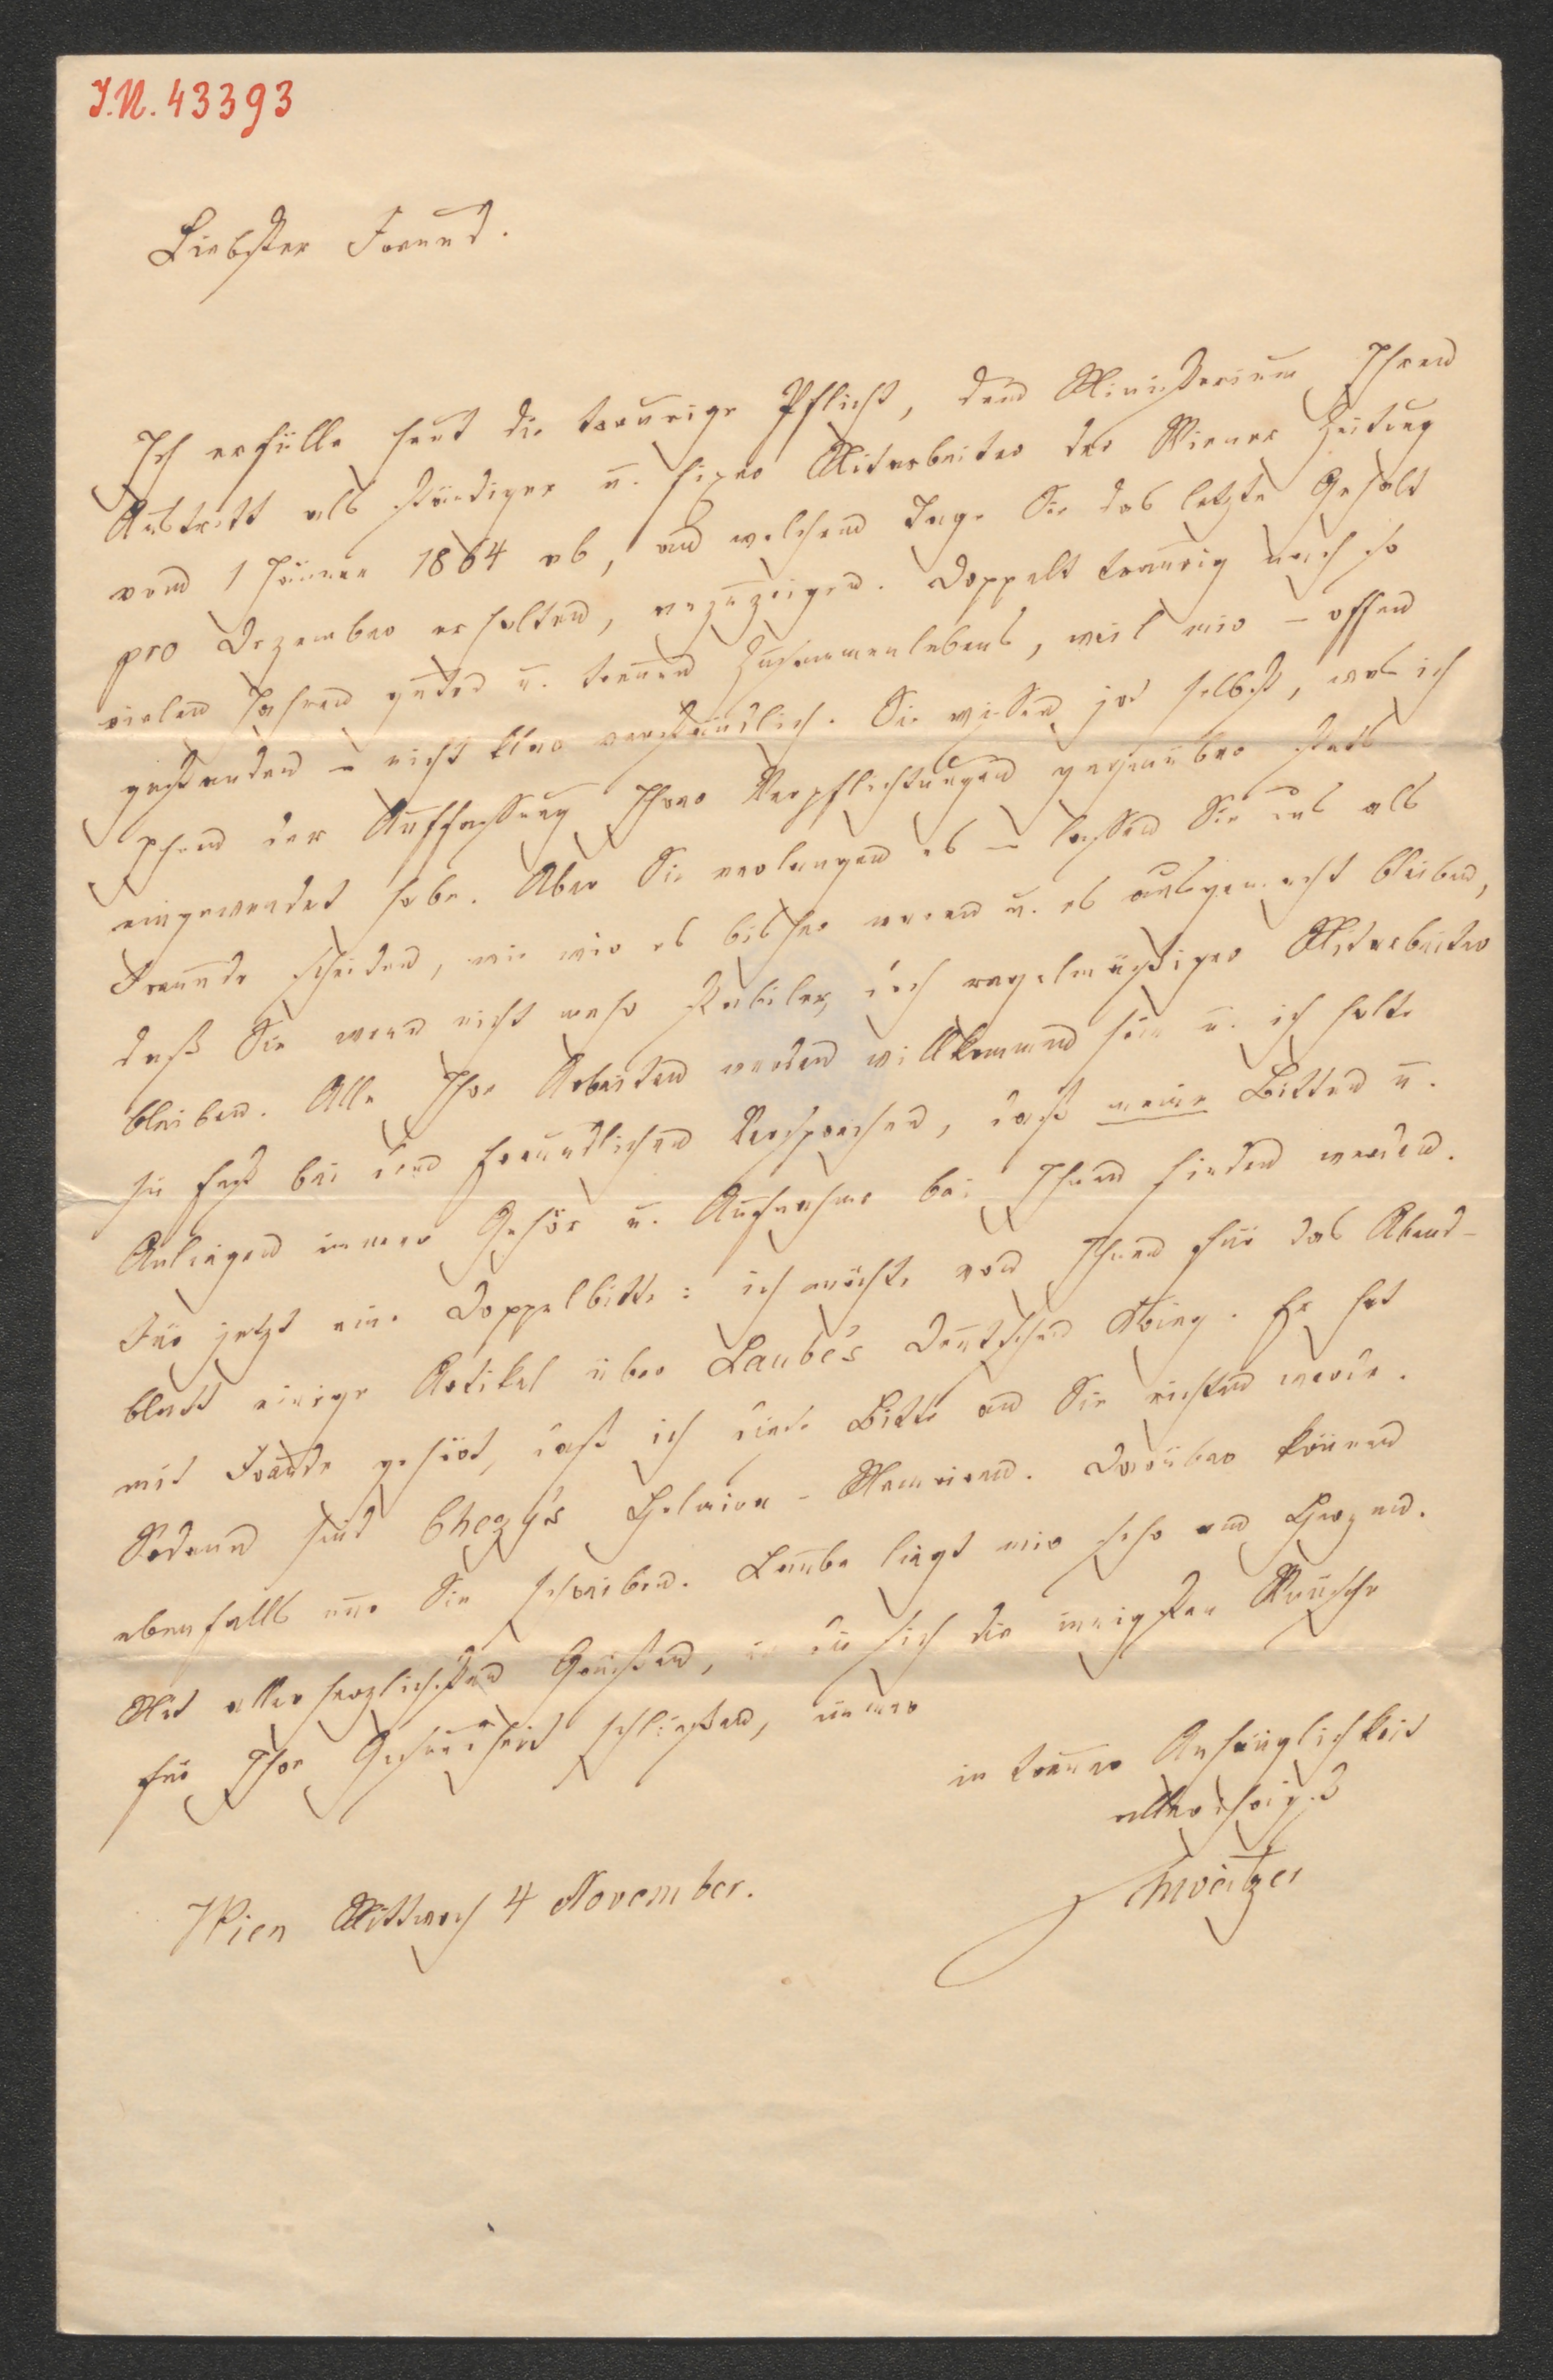 I.N. 43393
Liebster Freund.
Ich erfülle heut die traurige Pflicht, dem Ministerium Ihren
Austritt als ständiger u. fixer Mitarbeiter der Wiener Zeitung
vom 1 Jänner 1864 ab, an welchem Tage Sie das letzte Gehalt
pro Dezember erhalten, anzuzeigen. Doppelt traurig nach so
vielen Jahren guten u. treuen Zusammenlebens, weil mir – offen
gestanden – nicht klar verständlich. Sie wissen ja selbst, was ich
Ihnen der Auffassung Ihrer Verpflichtungen gegenüber stets
eingewendet habe. Aber Sie verlangen es – lassen Sie uns als
Freunde scheiden, wie wir es bisher waren u. es ausgemacht bleiben,
daß Sie wenn nicht mehr stabiler, doch regelmäßiger Mitarbeiter
bleiben. Alle Ihre Arbeiten werden willkommen sein u. ich halte
Sie fest bei dem freundlichen Versprechen, daß meine Bitten u.
Anliegen immer Gehör u. Aufnahme bei Ihnen finden werden.
Für jetzt eine Doppelbitte: ich möchte von Ihnen für das Abend-
blatt einige Artikel über Laube's Deutschen Krieg. Er hat
mit Freude gehört, daß ich diese Bitte an Sie richten werde.
Sodann sind Chezy's Helmina-Memoiren. Darüber können
ebenfalls nur Sie schreiben. Laube liegt mir sehr am Herzen.
Mit allerherzlichsten Grüßen, in die sich die innigsten Wünsche
für Ihre Gesundheit schließen, immer
in treuer Anhänglichkeit
allerihrigst
Schweitzer
Wien Mittwoch 4 November.